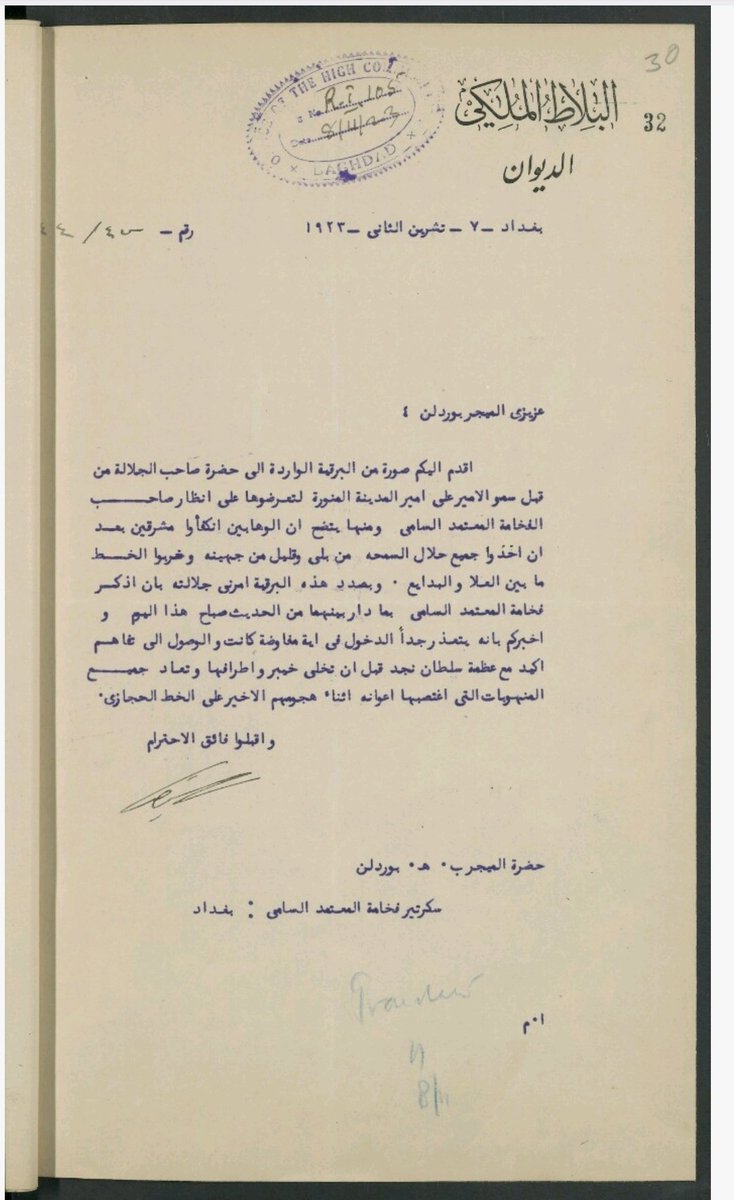 30
OF THE HIGH CO
No. R.I 105
Date 8/11/23
BAGHDAD
البلاط الملكي
32
الديوان
بغداد ـ ٧ ـ تشرين الثاني ـ ١٩٢٣
رقم ـ
عزيزي الميجر بوردلن ٤
اقدم اليكم صورة من البرقية الواردة الى حضرة صاحب الجلالة من
قبل سمو الامير على امير المدينة المنورة لتعرضوها على انظار صاحب
الفخامة المعتمد السامى ومنها يتضح ان الوهابين انكفأوا مشرقين بعد
ان اخذوا جميع حلال السمحه من بلى وقليل من جهينه وخربوا الخط
ما بين العلا والبدايع ٠ وبصدد هذه البرقية امرنى جلالته بان اذكر
فخامة المعتمد السامى بما دار بينهما من الحديث صباح هذا اليوم و
اخبركم بانه يتعذر جداً الدخول فى اية مفاوضة كانت والوصول الى تفاهم
اكيد مع عظمة سلطان نجد قبل ان تخلى خيبر واطرافها وتعاد جميع
المنهوبات التى اغتصبها اعوانه اثناء هجومهم الاخير على الخط الحجازى٠
واقبلوا فائق الاحترام
حضرة الميجر ب٠ ه٠ بوردلن
سكرتير فخامة المعتمد السامى : بغداد
ا٠م
8/11